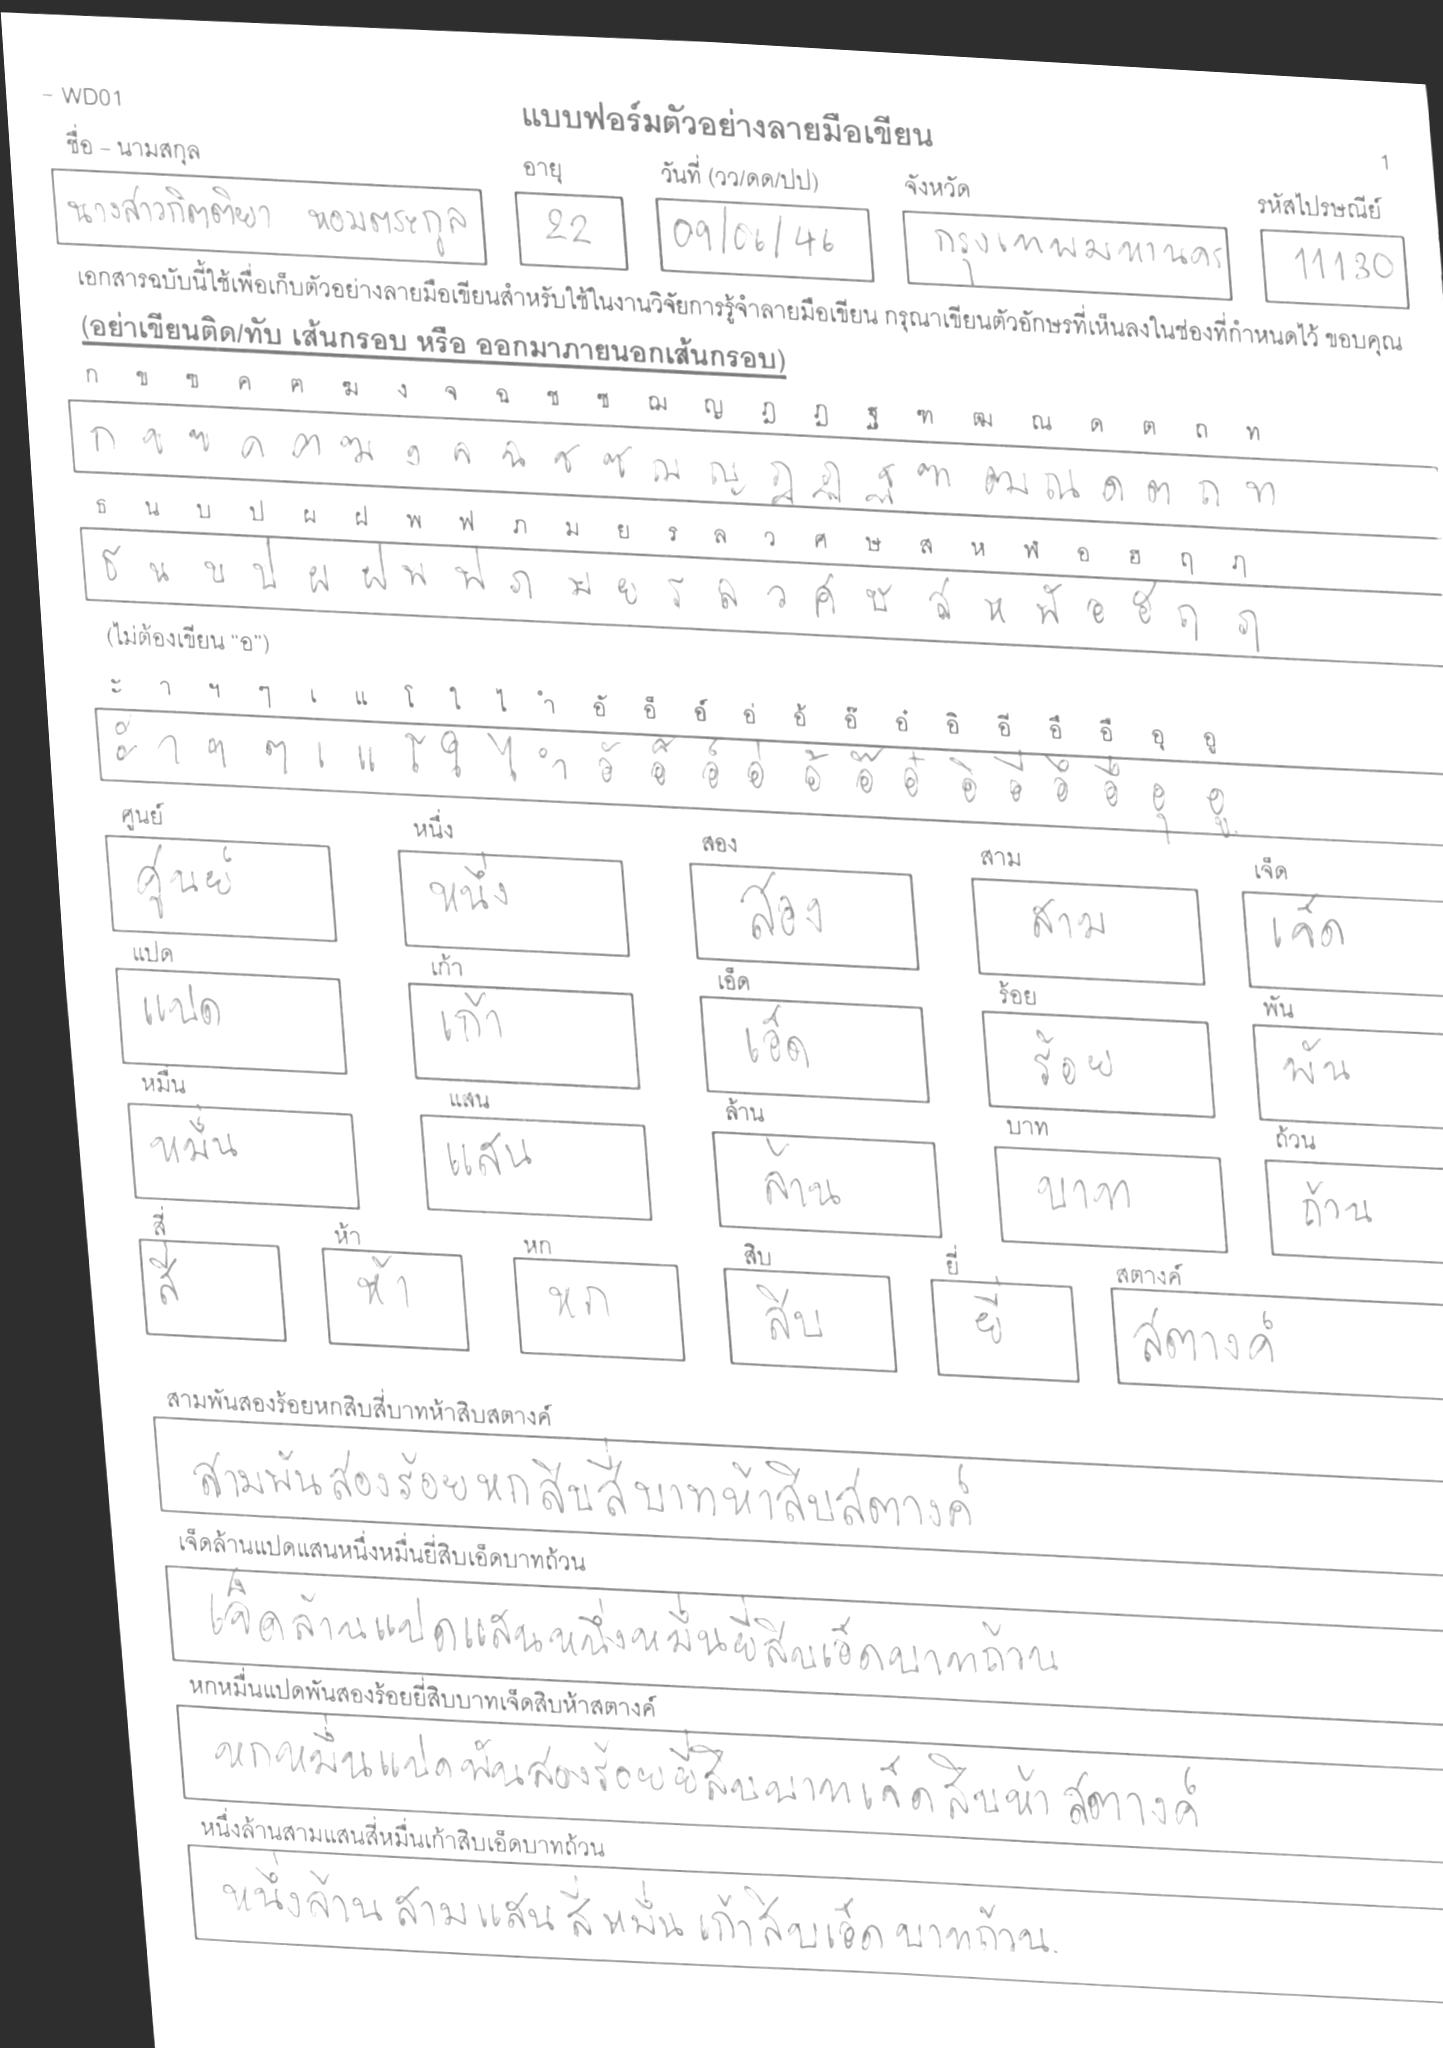 - WD01
แบบฟอร์มตัวอย่างลายมือเขียน
1
ชื่อ - นามสกุล อายุ วันที่ (วว/ดด/ปป) จังหวัด รหัสไปรษณีย์
นางสาวกิตติยา หอมตระกูล 22 09/06/46 กรุงเทพมหานคร 11130
เอกสารฉบับนี้ใช้เพื่อเก็บตัวอย่างลายมือเขียนสำหรับใช้ในงานวิจัยการรู้จำลายมือเขียน กรุณาเขียนตัวอักษรที่เห็นลงในช่องที่กำหนดไว้ ขอบคุณ
(อย่าเขียนติด/ทับ เส้นกรอบ หรือ ออกมาภายนอกเส้นกรอบ)
ก ข ฃ ค ฅ ฆ ง จ ฉ ช ซ ฌ ญ ฎ ฏ ฐ ฑ ฒ ณ ด ต ถ ท
ก ข ฃ ค ฅ ฆ ง จ ฉ ช ซ ฌ ญ ฎ ฏ ฐ ฑ ฒ ณ ด ต ถ ท
ธ น บ ป ผ ฝ พ ฟ ภ ม ย ร ล ว ศ ษ ส ห ฬ อ ฮ ฤ ฦ
ธ น บ ป ผ ฝ พ ฟ ภ ม ย ร ล ว ศ ษ ส ห ฬ อ ฮ ฤ ฦ
(ไม่ต้องเขียน "อ")
ะ า ฯ ๆ เ แ โ ใ ไ ำ อั อ็ อ์ อ่ อ้ อ๊ อ๋ อิ อี อึ อื อุ อู
ะ า ฯ ๆ เ แ โ ใ ไ ำ อั อ็ อ์ อ่ อ้ อ๊ อ๋ อิ อี อึ อื อุ อู
ศูนย์ หนึ่ง สอง สาม เจ็ด
ศูนย์ หนึ่ง สอง สาม เจ็ด
แปด เก้า เอ็ด ร้อย พัน
แปด เก้า เอ็ด ร้อย พัน
หมื่น แสน ล้าน บาท ถ้วน
หมื่น แสน ล้าน บาท ถ้วน
สี่ ห้า หก สิบ ยี่ สตางค์
สี่ ห้า หก สิบ ยี่ สตางค์
สามพันสองร้อยหกสิบสี่บาทห้าสิบสตางค์
สามพันสองร้อยหกสิบสี่บาทห้าสิบสตางค์
เจ็ดล้านแปดแสนหนึ่งหมื่นยี่สิบเอ็ดบาทถ้วน
เจ็ดล้านแปดแสนหนึ่งหมื่นยี่สิบเอ็ดบาทถ้วน
หกหมื่นแปดพันสองร้อยยี่สิบบาทเจ็ดสิบห้าสตางค์
หกหมื่นแปดพันสองร้อยยี่สิบบาทเจ็ดสิบห้าสตางค์
หนึ่งล้านสามแสนสี่หมื่นเก้าสิบเอ็ดบาทถ้วน
หนึ่งล้านสามแสนสี่หมื่นเก้าสิบเอ็ดบาทถ้วน.